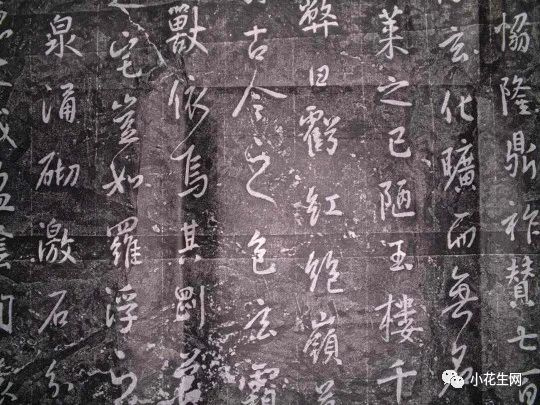 協隆鼎祚贊七百
玄化曠而無名
萊之已陋玉樓千
弊日虧紅絕嶺
古今之色玄霜
獸依焉其剛
宅豈如羅浮之
泉涌砌激石分
小花生网